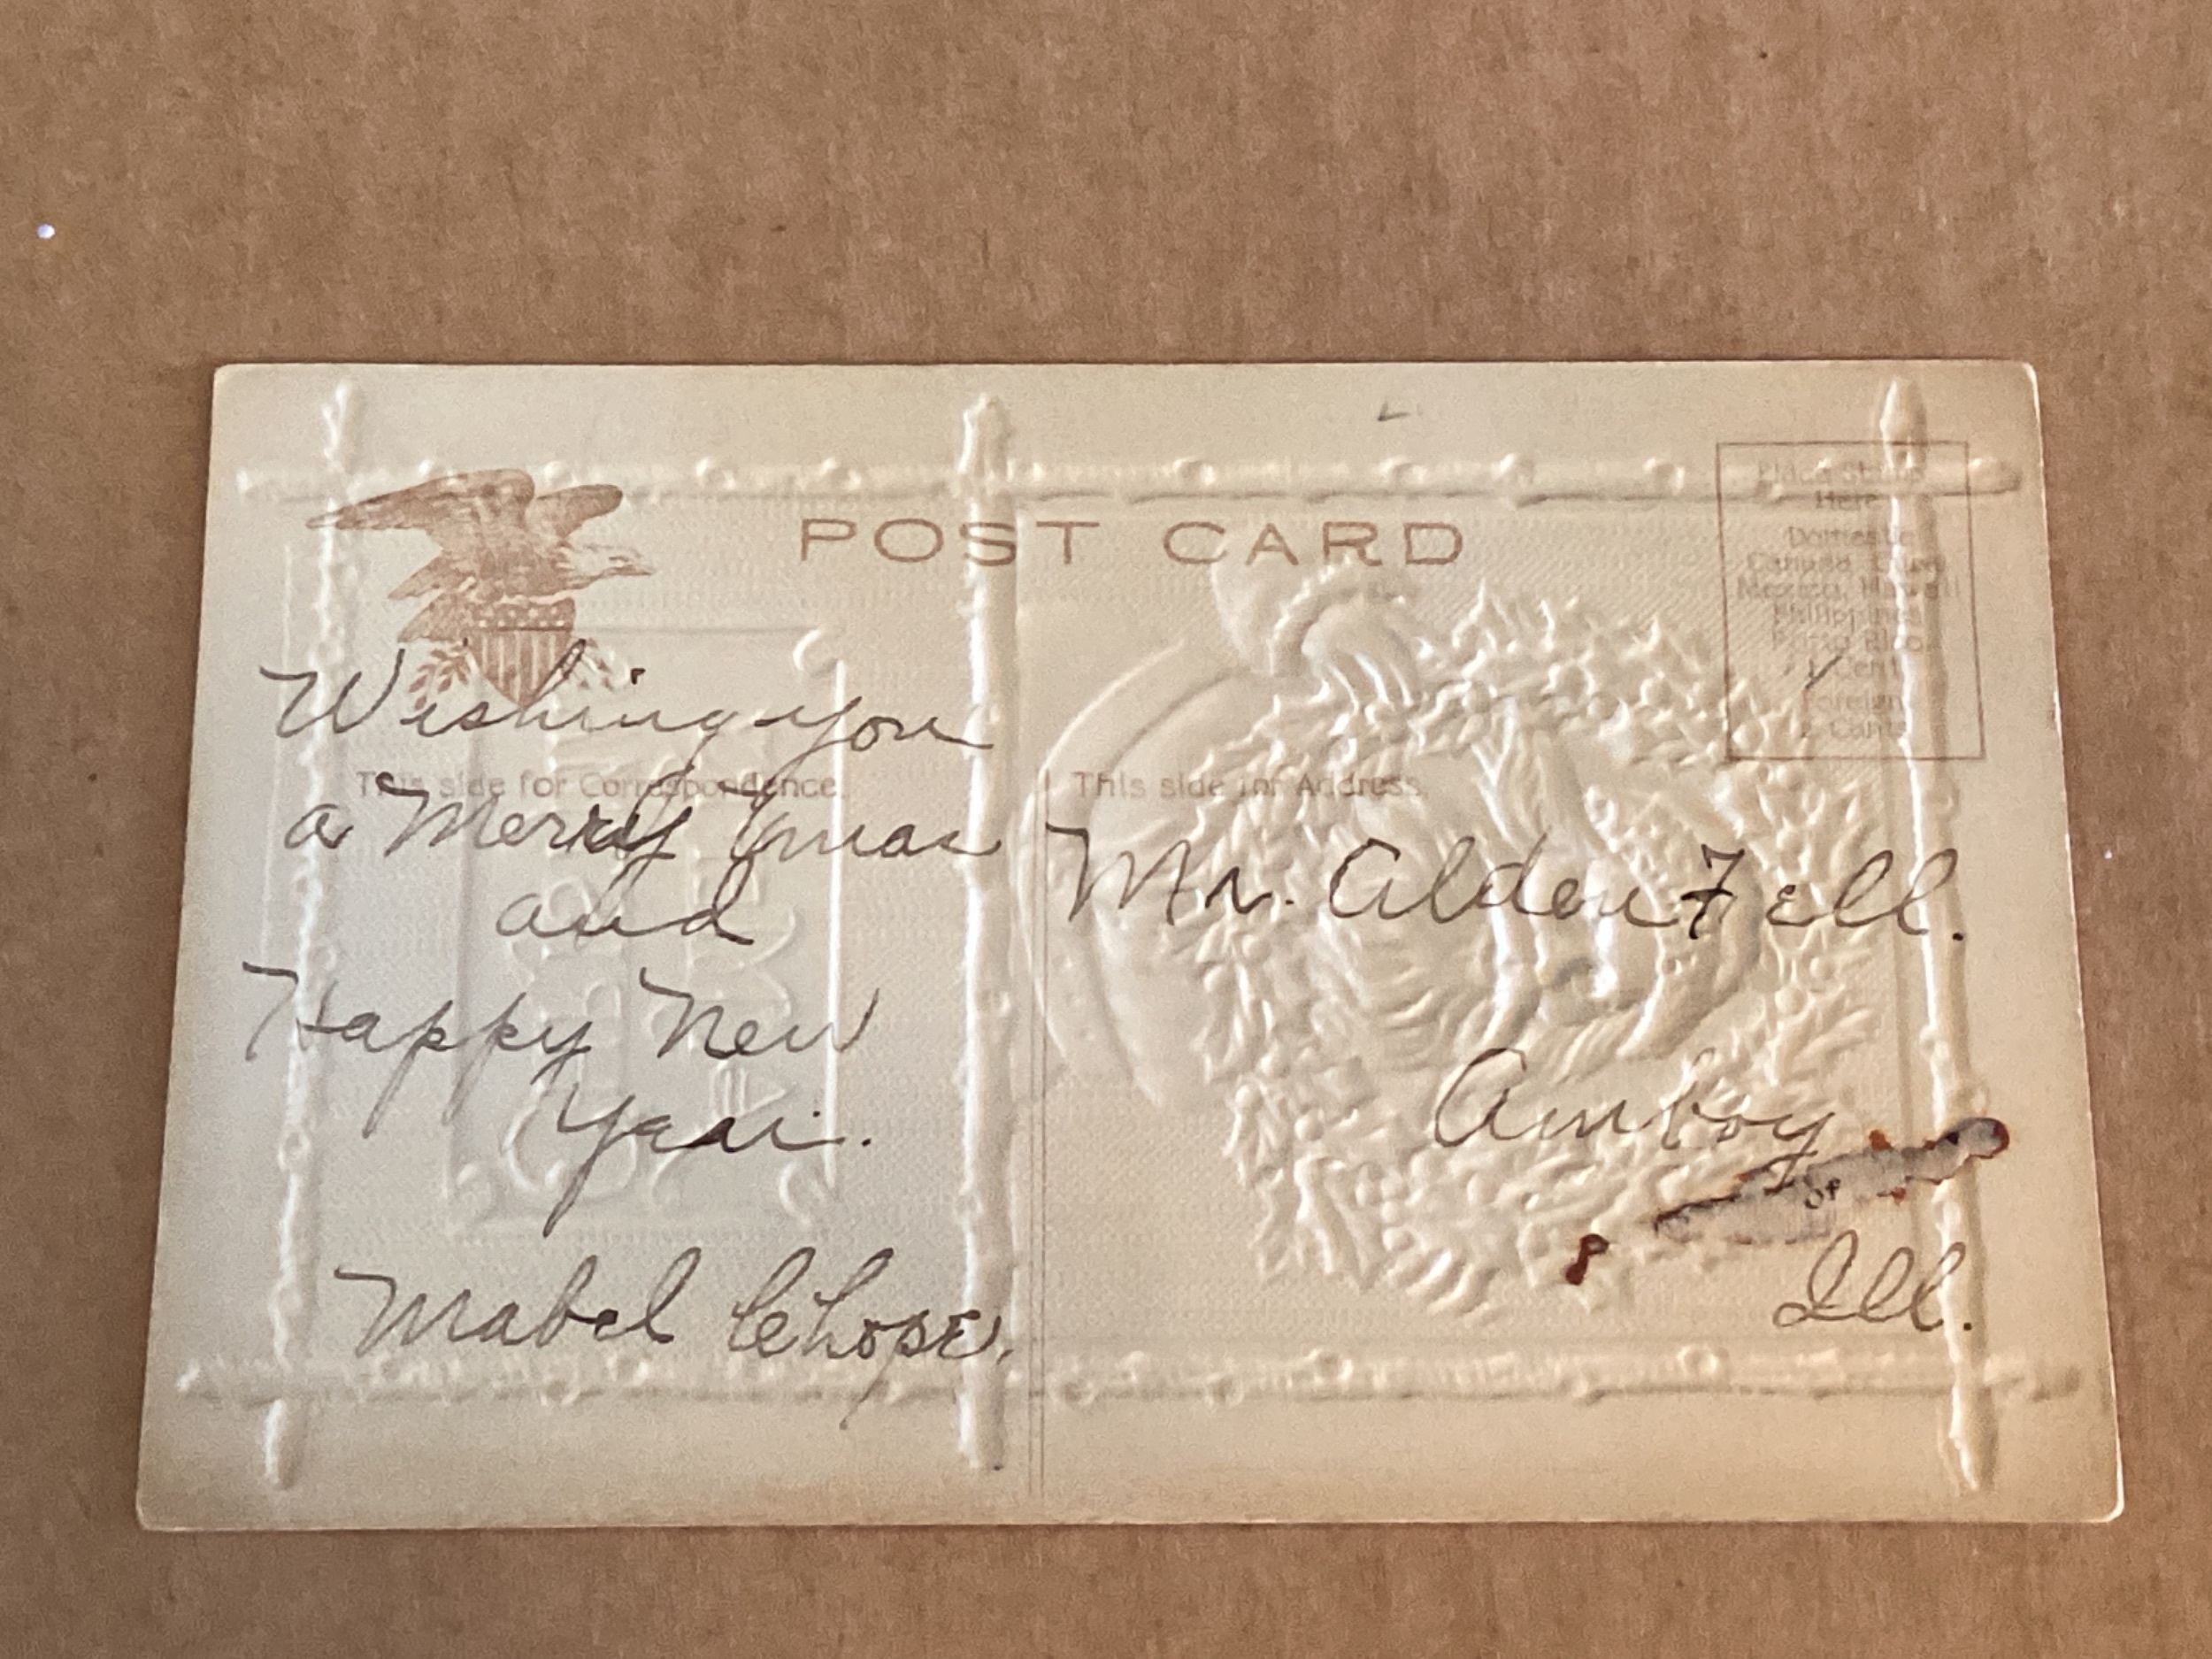 POST CARD
Place Stamp
Here
Domestic
Canada Cuba
Mexico, Hawaii
Philippines
Porto Rico
1 Cent
Foreign
2 Cents
This side for Correspondence.
Wishing you
a Merry Xmas
and
Happy New
Year.
Mabel
This side for Address.
Mr. Alden Fell.
Amboy
Ill.